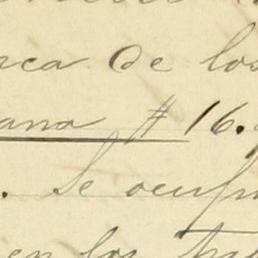 rca de los
ana # 16.
. Se ocup
en los tra